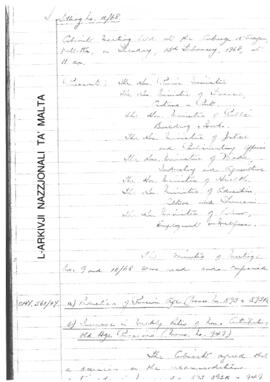 Meeting No. 11/68.
Cabinet Meeting held at the Auberge d'Aragon,
Valletta, on Tuesday, 13th February, 1968, at
11 am.
Present: The Hon. Prime Minister
The Hon. Minister of Finance,
Customs & Port.
The Hon. Minister of Public
Building & Works.
The Hon. Minister of Justice
and Parliamentary Affairs
The Hon. Minister of Trade,
Industry and Agriculture
The Hon. Minister of Health.
The Hon. Minister of Education,
Culture and Tourism.
The Hon. Minister of Labour,
Employment & Welfare.
L-ARKIVJI NAZZJONALI TA' MALTA
The Minutes of Meetings
No. 9 and 10/68 were read and confirmed
a) of Pension Age (Memo. No. 893 & 893A
b) Increase in Weekly Rates of Non-Contributory
Old Age Pensions (Memo. No. 949)
The Cabinet agreed that
a decision on the recommendations
893 893A & 949